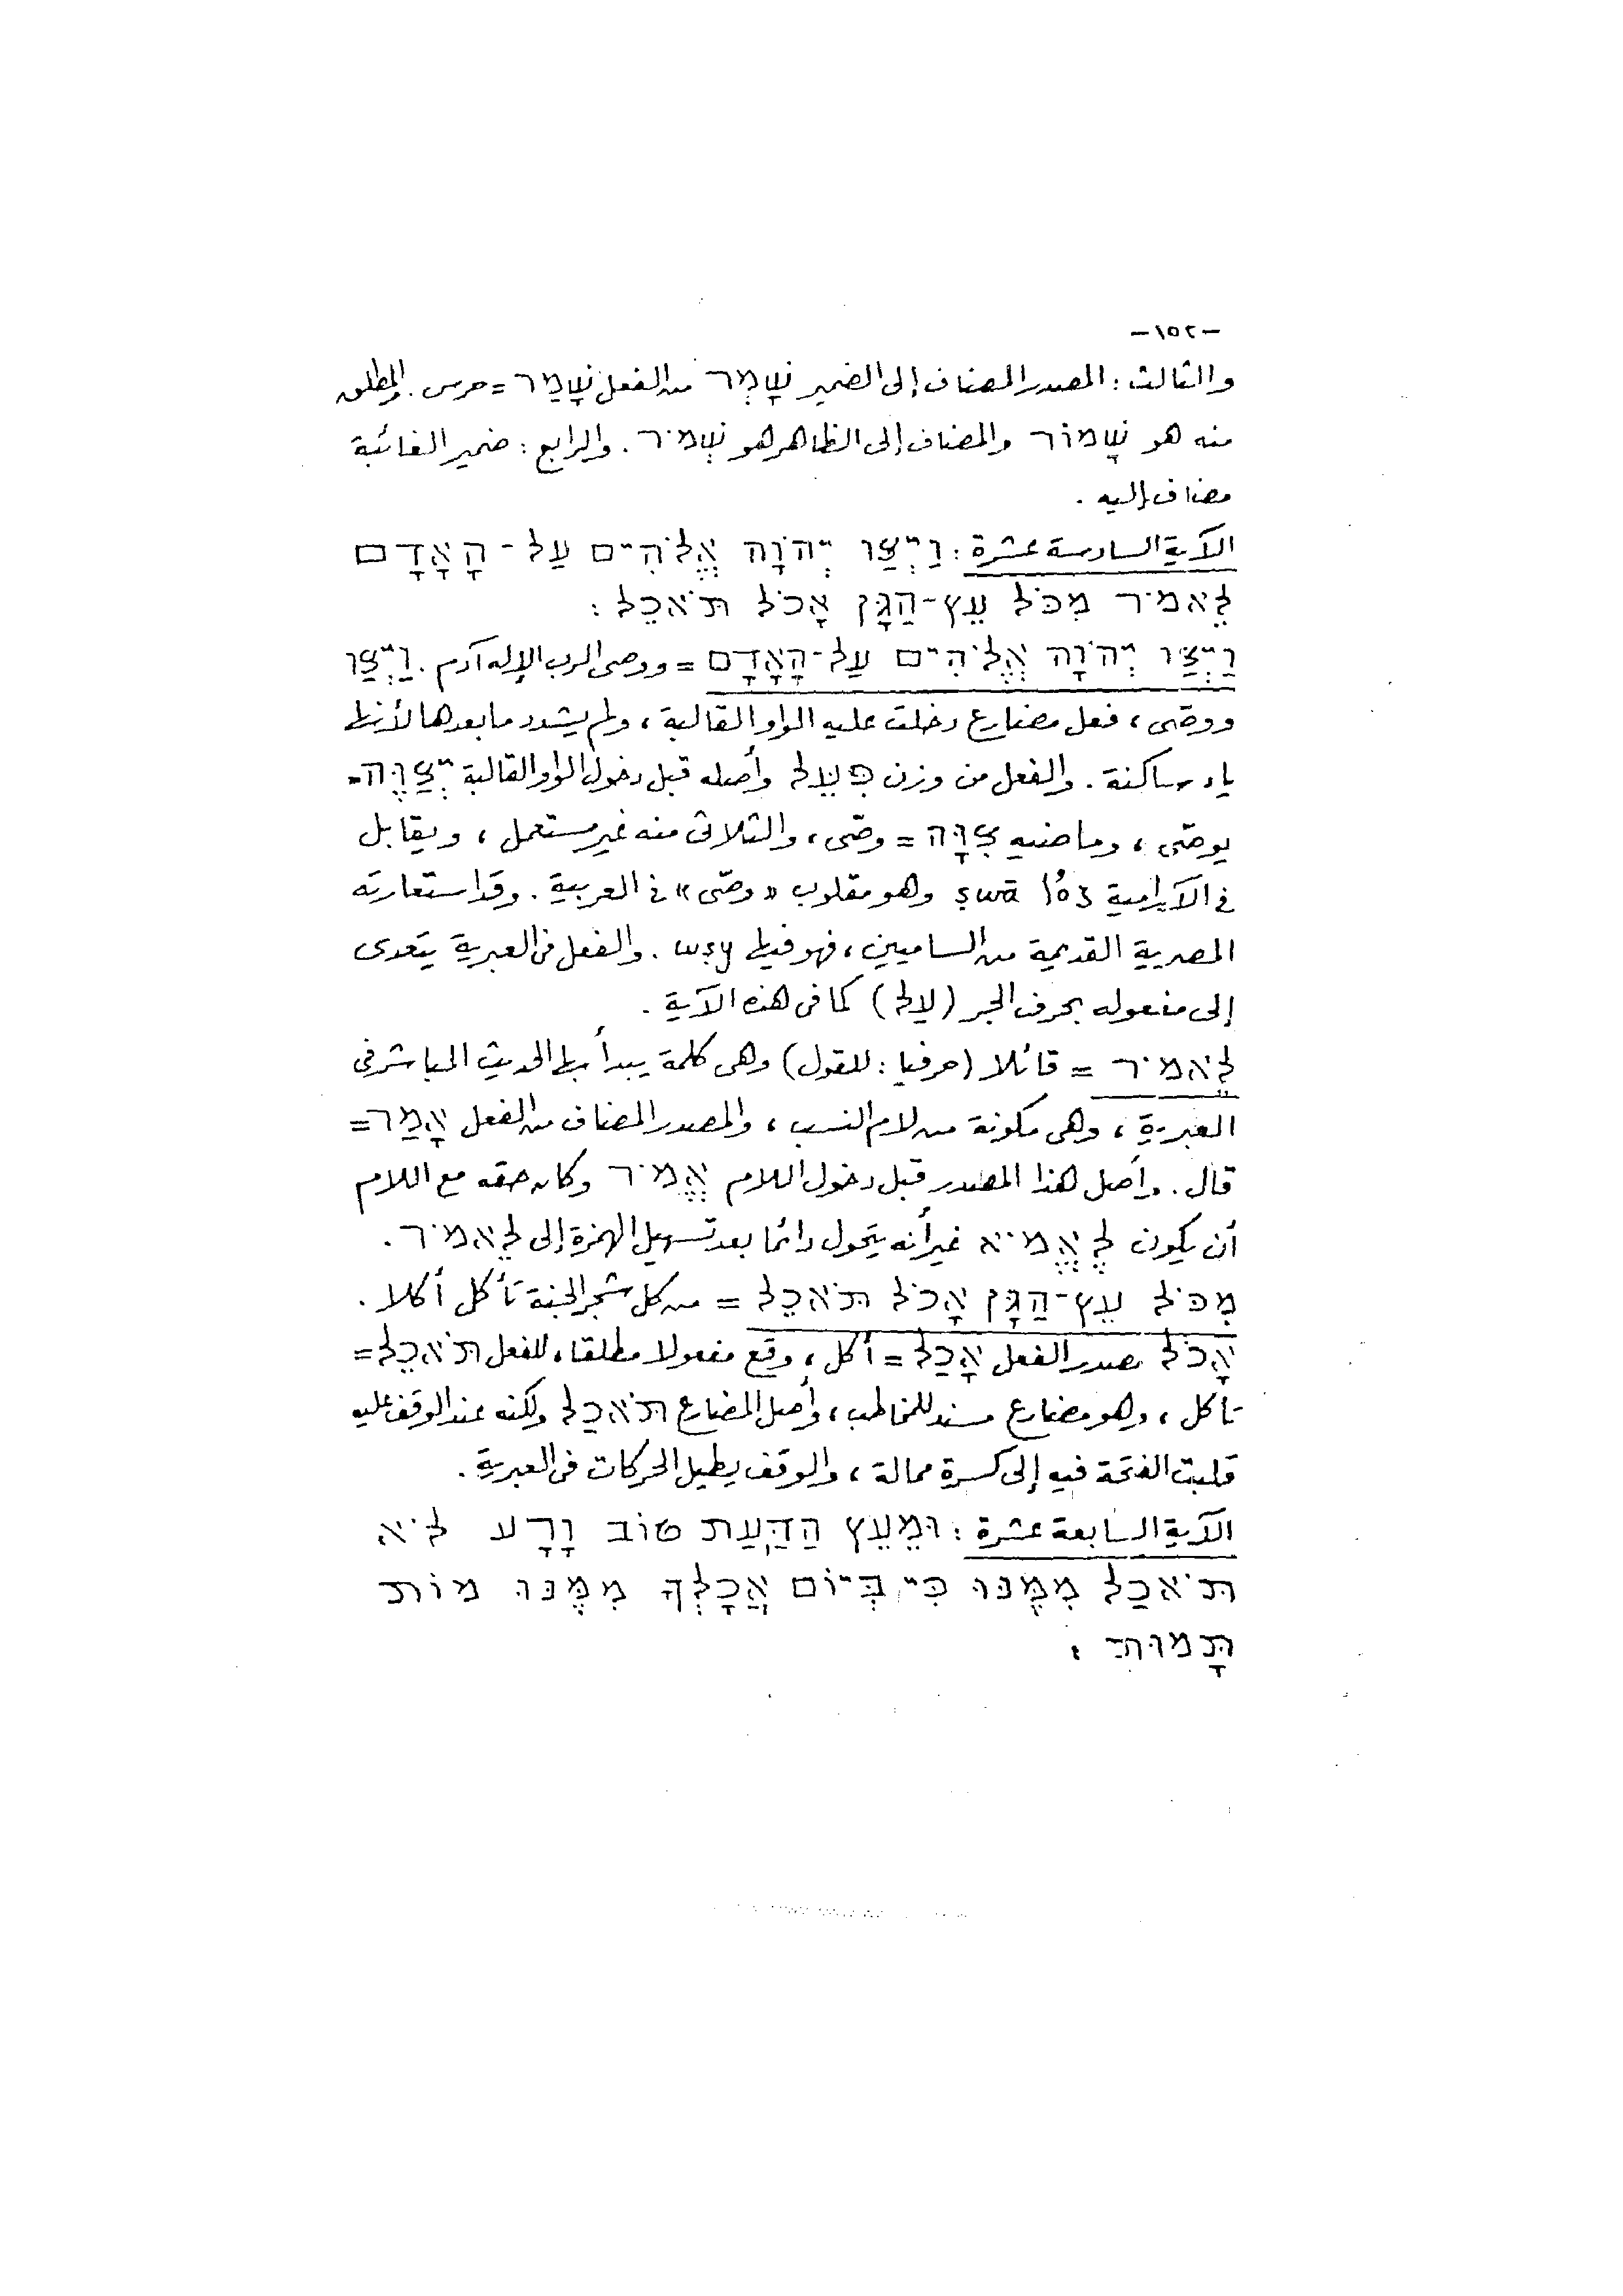 -١٥٢-
والثالث : المصدر المضاف إلى الضمير שָׁמְר من الفعل שָׁמַר = حرس . والمطلق
منه هو שָׁמוֹר والمضاف إلى الظاهر هو שְׁמֹר . والرابع : ضمير الغائبة
مضاف إليه .
الآية السادسة عشرة : וַיְצַו יְהֹוָה אֱלֹהִים עַל-הָאָדָם
לֵאמֹר מִכֹּל עֵץ-הַגָּן אָכֹל תֹּאכֵל :
וַיְצַו יְהֹוָה אֱלֹהִים עַל-הָאָדָם = ووصى الرب الإله آدم . וַיְצַו
ووصّى ، فعل مضارع دخلت عليه الواو القالبة ، ولم يشدد ما بعدها لأنها
ياء ساكنة . والفعل من وزن פִּעֵל وأصله قبل دخول الواو القالبة יְצַוֶּה =
يوصّى ، وماضيه צִוָּה = وصّى ، والثلاثى منه غير مستعمل ، ويقابل
فى الآرامية ܨܘܐ ṣwā وهو مقلوب « وصّى » فى العربية . وقد استعارته
المصرية القديمة من الساميين ، فهو فيها wṣy . والفعل فى العبرية يتعدى
إلى مفعوله بحرف الجر ( עַל ) كما فى هذه الآية .
לֵאמֹר = قائلا ( حرفيا : للقول ) وهى كلمة يبدأ بها الحديث المباشر فى
العبرية ، وهى مكونة من لام النسب ، والمصدر المضاف من الفعل אָמַר =
قال . وأصل هذا المصدر قبل دخول اللام אֱמֹר وكان حقه مع اللام
أن يكون לֶאֱמֹא غير أنه يتحول دائما بعد تسهيل الهمزة إلى לֵאמֹר .
מִכֹּל עֵץ-הַגָּן אָכֹל תֹּאכֵל = من كل شجر الجنة تأكل أكلا .
אָכֹל مصدر الفعل אָכַל = أكل ، وقع مفعولا مطلقا ، للفعل תֹּאכֵל =
تأكل ، وهو مضارع مسند للمخاطب ، وأصل المضارع תֹּאכַל ولكنه عند الوقف عليه
قلبت الفتحة فيه إلى كسرة ممالة ، والوقف يطيل الحركات فى العبرية .
الآية السابعة عشرة : וּמֵעֵץ הַדַּעַת טוֹב וָרָע לֹא
תֹּאכַל מִמֶּנּוּ כִּי בְּיוֹם אֲכָלְךָ מִמֶּנּוּ מוֹת
תָּמוּת :